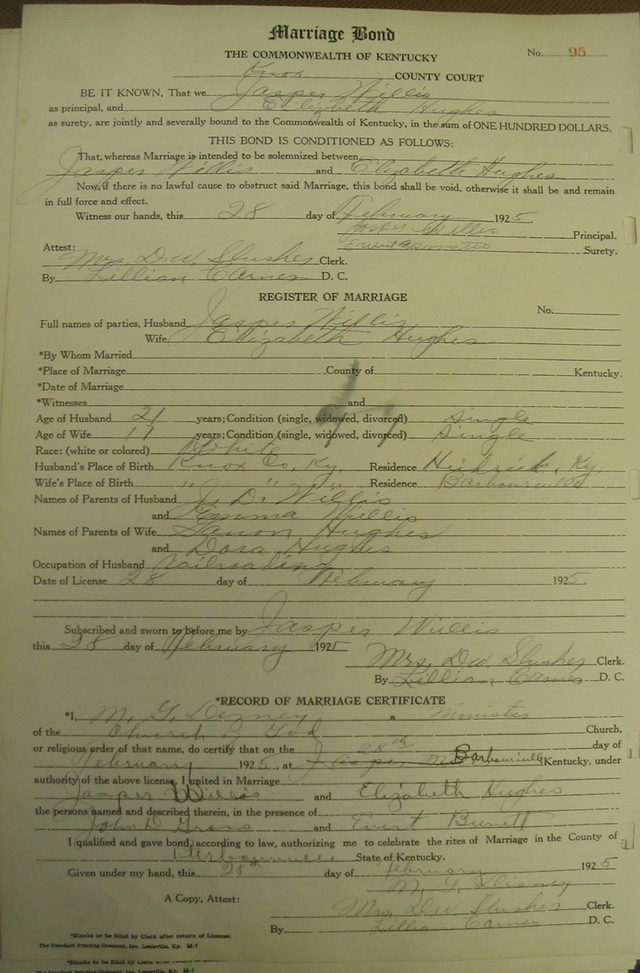 Marriage Bond
THE COMMONWEALTH OF KENTUCKY
No. 95
Knox COUNTY COURT
BE IT KNOWN, That we Jasper Willis
as principal, and Elizabeth Hughes
as surety, are jointly and severally bound to the Commonwealth of Kentucky, in the sum of ONE HUNDRED DOLLARS.
THIS BOND IS CONDITIONED AS FOLLOWS:
That, whereas Marriage is intended to be solemnized between
Jasper Willis and Elizabeth Hughes
Now, if there is no lawful cause to obstruct said Marriage, this bond shall be void, otherwise it shall be and remain
in full force and effect.
Witness our hands, this 28 day of February 1925
Jasper Willis Principal.
Surety.
Attest:
Mrs. D.W. Slusher Clerk.
By Lillian Carnes D. C.
REGISTER OF MARRIAGE
No.
Full names of parties, Husband Jasper Willis
Wife Elizabeth Hughes
*By Whom Married
*Place of Marriage County of Kentucky.
*Date of Marriage
*Witnesses and
Age of Husband 21 years; Condition (single, widowed, divorced) Single
Age of Wife years; Condition (single, widowed, divorced) Single
Race: (white or colored) White
Husband's Place of Birth Knox Co, Ky. Residence Ky
Wife's Place of Birth " " " Residence Barbourville
Names of Parents of Husband J. D. Willis
and Emma Willis
Names of Parents of Wife Hughes
and Dora Hughes
Occupation of Husband Railroading
Date of License 28 day of February 1925.
Subscribed and sworn to before me by Jasper Willis
this 28 day of February 1925
Mrs. D.W. Slusher Clerk.
By Lillian Carnes D. C.
*RECORD OF MARRIAGE CERTIFICATE
*I, M. G. Disney a Minister
of the Church of God Church,
or religious order of that name, do certify that on the 28th day of
February 1925, at Barbourville Kentucky, under
authority of the above license, I united in Marriage
Jasper Willis and Elizabeth Hughes
the persons named and described therein, in the presence of
John D. Gross and Burnett
I qualified and gave bond, according to law, authorizing me to celebrate the rites of Marriage in the County of
Barbourville State of Kentucky.
Given under my hand, this 28th day of February 1925
M. G. Disney
A Copy, Attest: Mrs. D.W. Slusher Clerk.
By Lillian Carnes D. C.
*Blanks to be filed by Clerk after return of License.
The Standard Printing Company, Inc. Louisville, Ky. M-7
*Blanks to be filed by Clerk after return of License.
The Standard Printing Company, Inc. Louisville, Ky. M-7